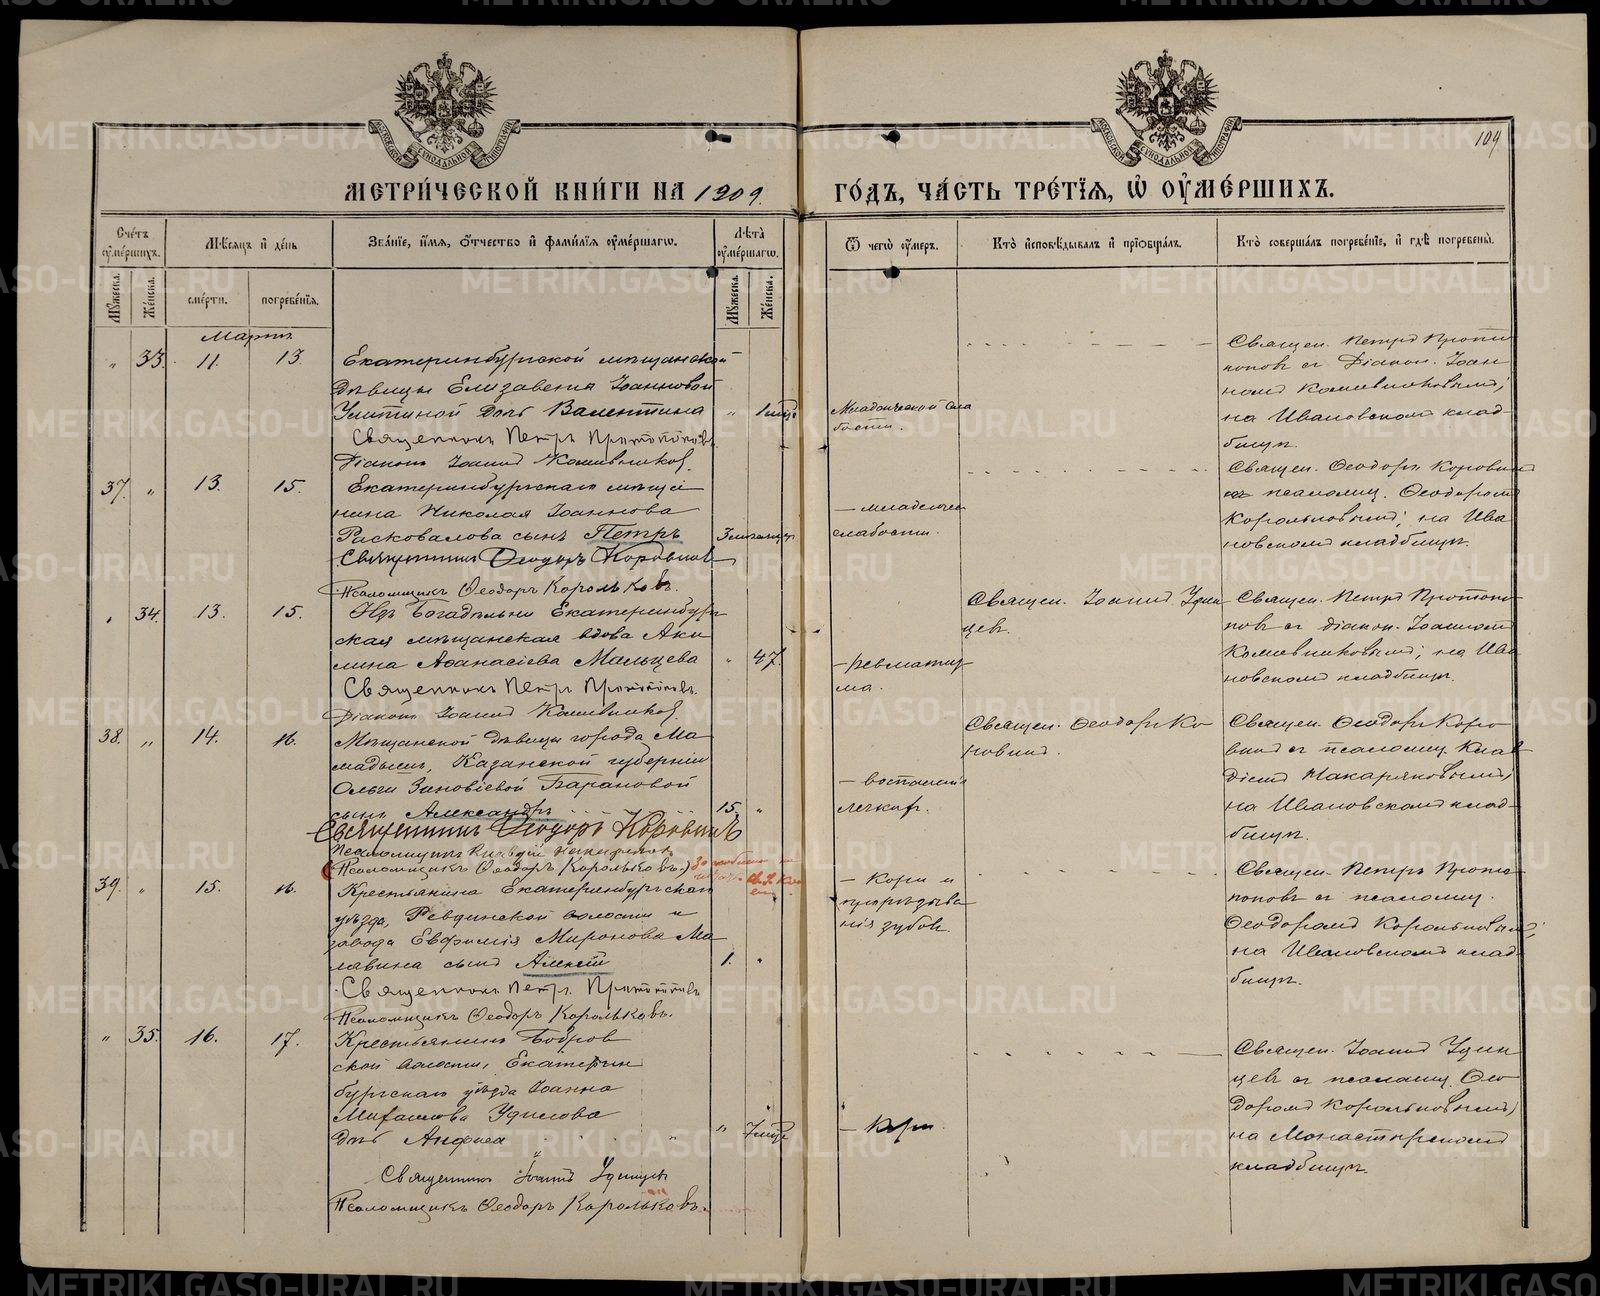 104
МЕТРИ́ЧЕСКОЙ КНИ́ГИ НА 1909. ГО́ДЪ, ЧА́СТЬ ТРЕ́ТІѦ, Ѡ҆ ОУ҆МЕ́РШИХЪ.
Сче́тъ оу҆ме́ршихъ.
Мѣ́сѧцъ и҆ де́нь
Зва́нїе, и҆́мѧ, ѻ҆́тчество и҆ фами́лїѧ оу҆ме́ршагѡ.
Лѣ́та оу҆ме́ршагѡ.
Ѿ чегѡ̀ оу҆́меръ.
Кто̀ и҆сповѣ́дывалъ и҆ прїѡбща́лъ.
Кто̀ соверша́лъ погребе́нїе, и҆ гдѣ̀ погребены̀.
Мꙋ́жеска. Же́нска. сме́рти. погребе́нїѧ. Мꙋ́жеска. Же́нска.
Мартъ
" 33. 11. 13
Екатеринбургской мѣщанской
дѣвицы Елизаветы Іоанновой
дочь Валентина
Священникъ Петръ Протопоповъ.
Діаконъ Іоаннъ
" 1 мѣс
Младенческой сла
бости.
Священ. Петръ Прото
поповъ съ Діакон. Іоан
номъ
на Ивановскомъ клад-
бищѣ.
37. " 13. 15.
Екатеринбургскаго мѣща
нина Николая Іоаннова
Расковалова сынъ Петръ
Священникъ Ѳеодоръ Коровинъ
Псаломщикъ Ѳеодоръ Корольковъ.
3 мѣсяца
— младенчес
слабости.
Священ. Ѳеодоръ Коровин
съ псаломщ. Ѳеодоромъ
Корольковымъ; на Ива
новскомъ кладбищѣ.
" 34. 13. 15.
Изъ Богадѣльни Екатеринбург
ская мѣщанская вдова Аки
лина Аѳанасіева Мальцева
Священникъ Петръ Протопоповъ.
Діаконъ Іоаннъ
" 47.
— ревматиз
ма.
Священ. Іоаннъ Удин
цевъ.
Священ. Петръ Протопо
повъ съ діакон. Іоанномъ
на Ива
новскомъ кладбищѣ.
38. " 14. 16.
Мѣщанской дѣвицы города Ма
мадышъ, Казанской губерніи
Ольги Зиновіевой Барановой
сынъ Александръ
Священникъ Ѳеодоръ Коровинъ
Псаломщикъ Клавдій
(Псаломщикъ Ѳеодоръ Корольковъ.)
15. "
— воспаленія
легкихъ.
Священ. Ѳеодоръ Ко
ровинъ.
Священ. Ѳеодоръ Коро
винъ съ псаломщ. Клав
діемъ Макаряковымъ;
на Ивановскомъ клад-
бищѣ.
39. " 15. 16.
Крестьянина Екатеринбургскаго
уѣзда, Ревдинской волости и
завода Евфимія Миронова Ма
лавина сынъ Алексѣй
Священникъ Петръ Протопоповъ
Псаломщикъ Ѳеодоръ Корольковъ.
1. "
— Кори и
прорѣзыва
нія зубовъ.
Священ. Петръ Прото
поповъ съ псаломщ.
Ѳеодоромъ Корольковымъ;
на Ивановскомъ клад-
бищѣ.
" 35. 16. 17.
Крестьянина Бобров
ской волости, Екатерин
бургскаго уѣзда Іоанна
дочь Анфиса
Священникъ Іоаннъ Удинцевъ
Псаломщикъ Ѳеодоръ Корольковъ.
" 7 мѣс
— Кори
Священ. Іоаннъ Удин
цевъ съ псаломщ. Ѳео
доромъ Корольковымъ;
на Монастырскомъ
кладбищѣ.
METRIKI.GASO-URAL.RU